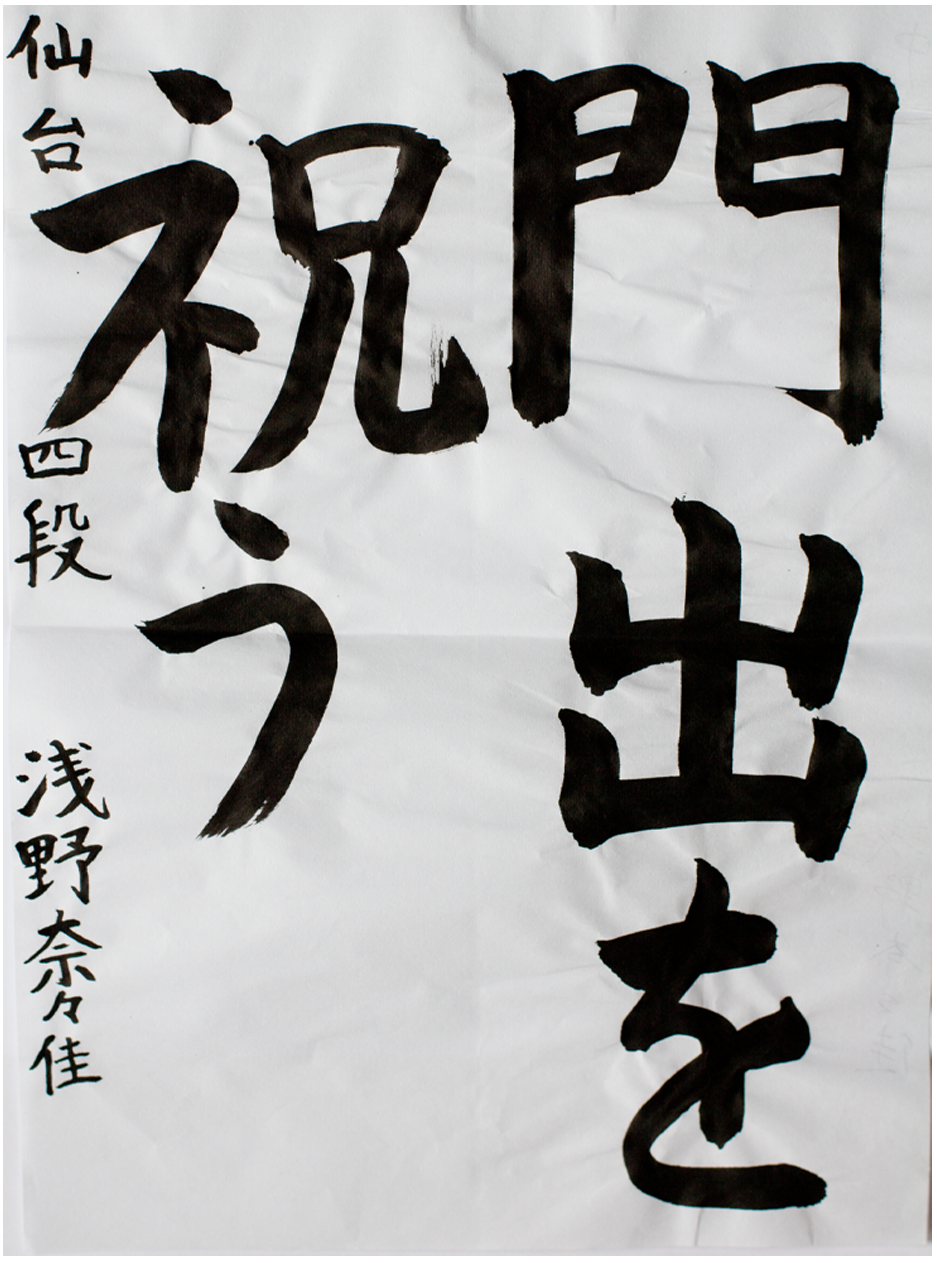 門出を
祝う
仙台 四段 浅野奈々佳